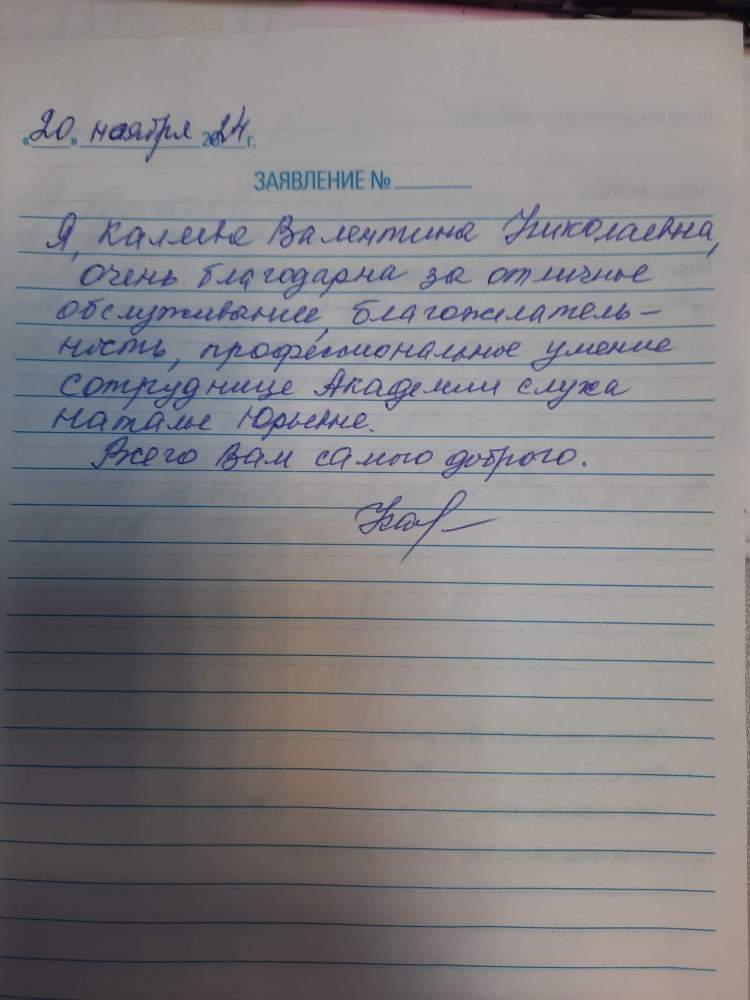 «20» ноября 2024 г.
ЗАЯВЛЕНИЕ №
Я, Валентина Николаевна,
очень благодарна за отличное
обслуживание, благожелатель-
ность, профессиональное умение
сотруднице Академии слуха
Наталье Юрьевне.
Всего Вам самого доброго.